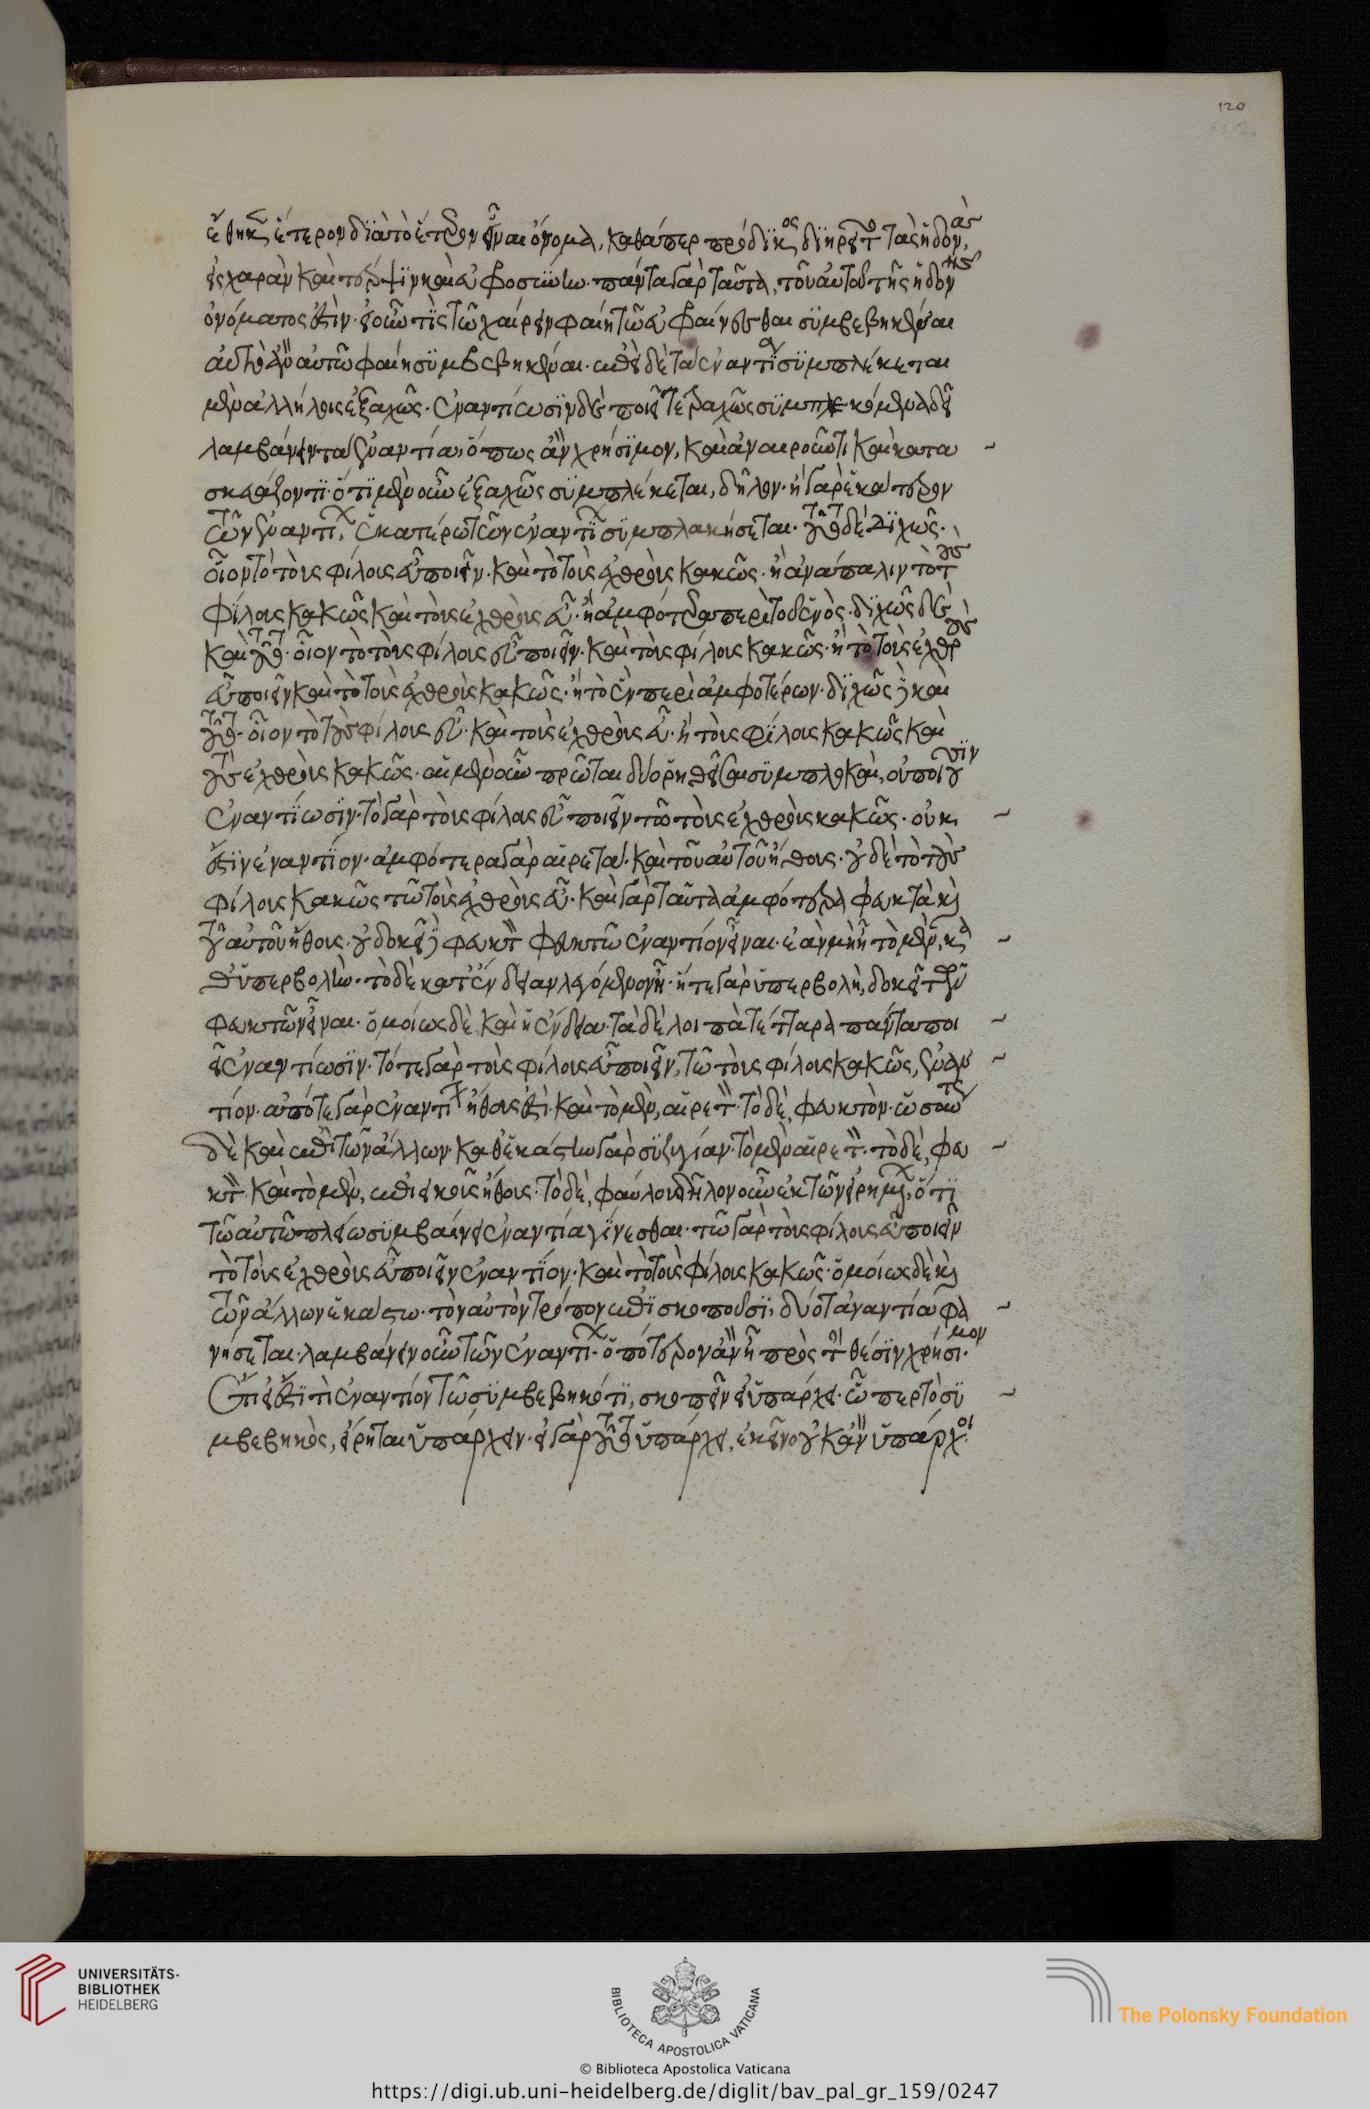 ἔθηκεν ἕτερον διὰ τὸ ἕτερον εἶναι ὄνομα, καθάπερ πρόδικος διῃρεῖτο τὰς ἡδονὰς,
εἰς χαρὰν καὶ τέρψιν καὶ εὐφροσύνην· πάντα γὰρ ταῦτα, τοῦ αὐτοῦ τῆς ἡδονῆς
ὀνόματος ἐστὶν· εἰ οὖν τὶς τῶ χαίρειν φαίη τῶ εὐφραίνεσθαι συμβεβηκέναι
αὐτὸ ἂν αὐτῶ φαίη συμβεβηκέναι· ἐπεὶ δὲ τὰ ἐναντία συμπλέκεται
μὲν ἀλλήλοις ἑξαχῶς· ἐναντίωσιν δὲ ποιεῖ τετραχῶς συμπλεκόμενα δεῖ
λαμβάνειν τὰ ἐναντία· ὅπως ἂν χρήσιμον, καὶ ἀναιροῦντι καὶ κατα
σκευάζοντι· ὅτι μὲν οὖν ἑξαχῶς συμπλέκεται, δῆλον· ἢ γὰρ ἑκάτερον
τῶν ἐναντίων, ἑκατέρω τῶν ἐναντίων συμπλακήσεται· τοῦτο δὲ διχῶς·
οἷον τὸ τοῖς φίλοις εὖ ποιεῖν· καὶ τὸ τοῖς ἐχθροῖς κακῶς· ἢ ἀνάπαλιν τὸ τοῖς
φίλοις κακῶς καὶ τοῖς ἐχθροῖς εὖ· ἢ ἀμφότερα περὶ τοῦ ἑνὸς· διχῶς δὲ
καὶ τοῦτο· οἷον τὸ τοῖς φίλοις εὖ ποιεῖν· καὶ τοῖς φίλοις κακῶς· ἢ τὸ τοῖς ἐχθροῖς
εὖ ποιεῖν καὶ τὸ τοῖς ἐχθροῖς κακῶς· ἢ τὸ ἓν περὶ ἀμφοτέρων· διχῶς δὲ καὶ
τοῦτο· οἷον τὸ τοῖς φίλοις εὖ· καὶ τοῖς ἐχθροῖς εὖ· ἢ τοῖς φίλοις κακῶς καὶ
τοῖς ἐχθροῖς κακῶς· αἱ μὲν οὖν πρῶται δύο ῥηθεῖσαι συμπλοκαὶ, οὐ ποιοῦσιν
ἐναντίωσιν· τὸ γὰρ τοῖς φίλοις εὖ ποιεῖν τῶ τοῖς ἐχθροῖς κακῶς· οὐκ
ἔστιν ἐναντίον· ἀμφότερα γὰρ αἱρετὰ· καὶ τοῦ αὐτοῦ ἤθους· οὐδὲ τὸ τοῖς
φίλοις κακῶς τῶ τοῖς ἐχθροῖς εὖ· καὶ γὰρ ταῦτα ἀμφότερα φευκτὰ καὶ
τοῦ αὐτοῦ ἤθους· οὐ δοκεῖ δὲ φευκτὸν φευκτῶ ἐναντίον εἶναι· ἐὰν μὴ ἦ τὸ μὲν, καθ
ὑπερβολὴν· τὸ δὲ κατ' ἔνδειαν λεγόμενον ἦ· ἥ τε γὰρ ὑπερβολὴ, δοκεῖ τῶν
φευκτῶν εἶναι· ὁμοίως δὲ καὶ ἡ ἔνδεια· τὰ δὲ λοιπὰ τέτταρα πάντα ποι
εῖ ἐναντίωσιν· τό τε γὰρ τοῖς φίλοις εὖ ποιεῖν, τῶ τοῖς φίλοις κακῶς, ἐναν
τίον· ἀπό τε γὰρ ἐναντίου ἤθους ἐστὶ· καὶ τὸ μὲν, αἱρετὸν· τὸ δὲ, φευκτὸν· ὡσαύτως
δὲ καὶ ἐπὶ τῶν ἄλλων· καθ' ἑκάστην γὰρ συζυγίαν· τὸ μὲν αἱρετὸν· τὸ δὲ, φευ
κτὸν· καὶ τὸ μὲν, ἐπιεικοῦς ἤθους· τὸ δὲ, φαύλου δῆλον οὖν ἐκ τῶν εἰρημένων, ὅτι
τῶ αὐτῶ πλείω συμβαίνει ἐναντία γίνεσθαι· τῶ γὰρ τοῖς φίλοις εὖ ποιεῖν
τὸ τοῖς ἐχθροῖς εὖ ποιεῖν ἐναντίον· καὶ τὸ τοῖς φίλοις κακῶς· ὁμοίως δὲ καὶ
τῶν ἄλλων ἑκάστω· τὸν αὐτὸν τρόπον ἐπισκοποῦσι, δύο τὰ ἐναντία φα
νήσεται· λαμβάνειν οὖν τῶν ἐναντίων· ὁπότερον ἂν ἦ πρὸς τὴν θέσιν χρήσιμον·
ἔτι εἰ ἔστι τὶ ἐναντίον τῶ συμβεβηκότι, σκοπεῖν εἰ ὑπάρχει· ὧ περ τὸ συ
μβεβηκὸς, εἴρηται ὑπάρχειν· εἰ γὰρ τοῦτο ὑπάρχει, ἐκεῖνο οὐκ ἂν ὑπάρχοι·
120
UNIVERSITÄTS-
BIBLIOTHEK
HEIDELBERG
BIBLIOTECA APOSTOLICA VATICANA
The Polonsky Foundation
© Biblioteca Apostolica Vaticana
https://digi.ub.uni-heidelberg.de/diglit/bav_pal_gr_159/0247